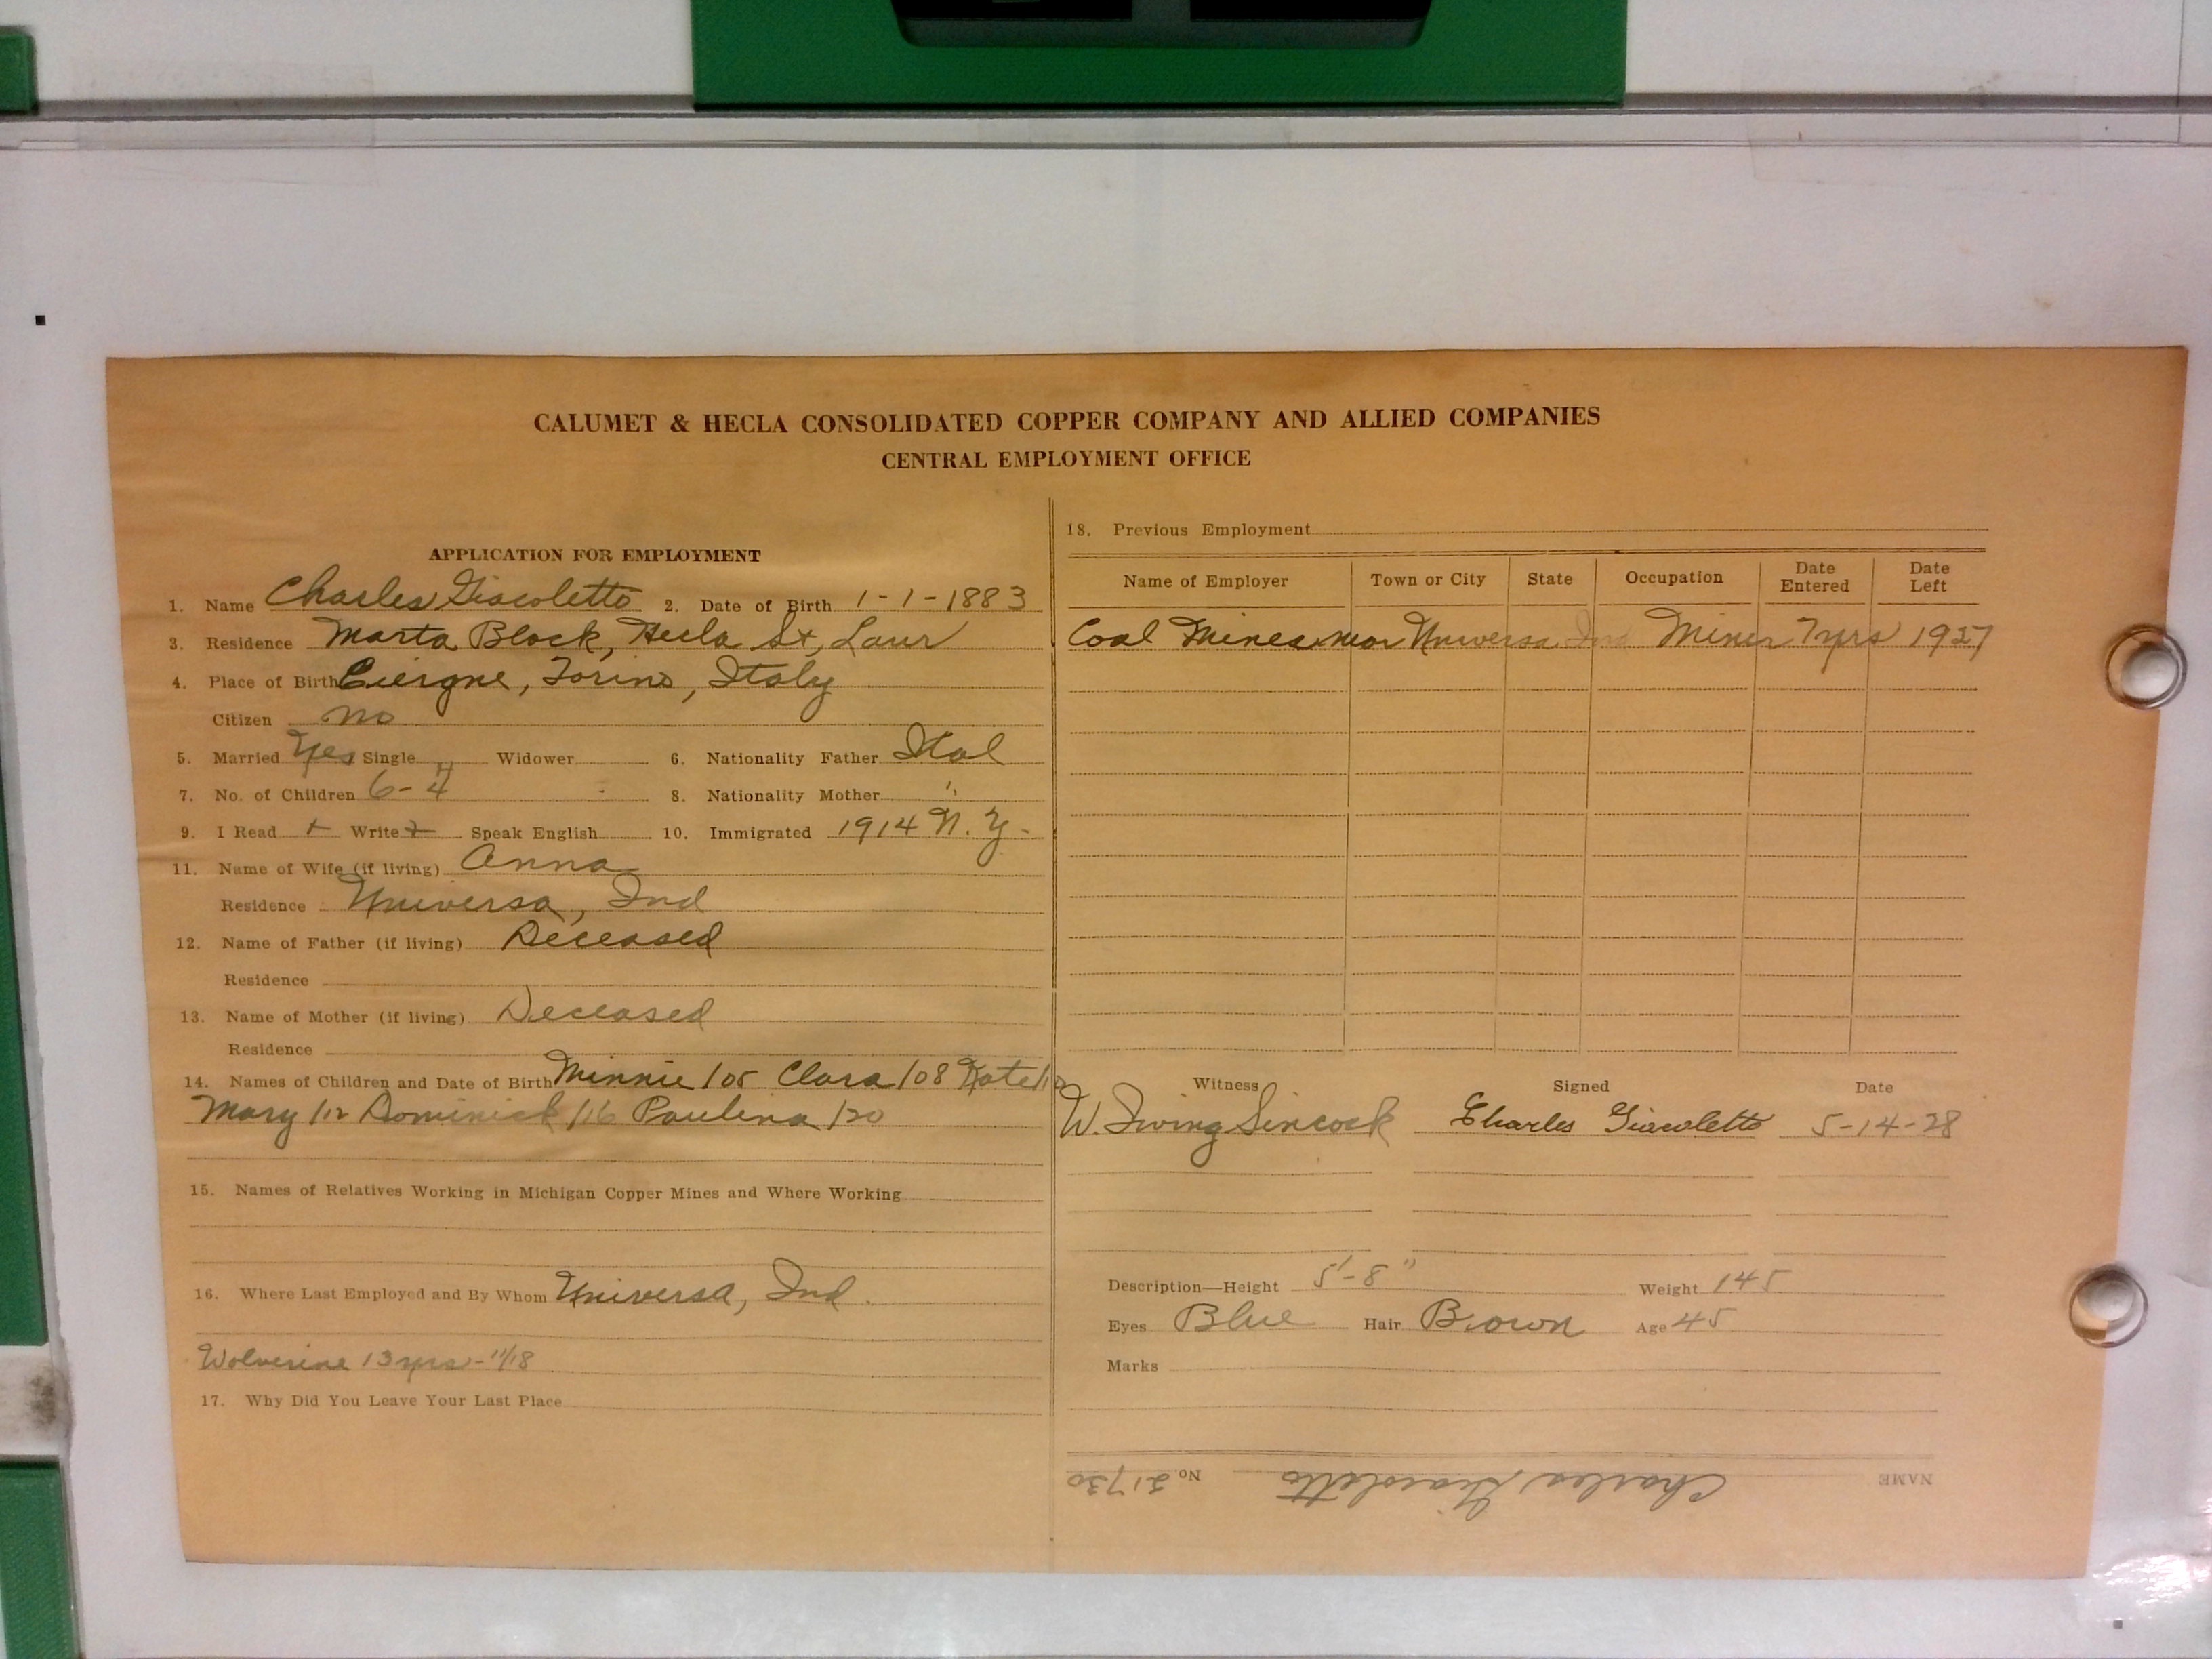 CALUMET & HECLA CONSOLIDATED COPPER COMPANY AND ALLIED COMPANIES
CENTRAL EMPLOYMENT OFFICE
APPLICATION FOR EMPLOYMENT
1. Name Charles Giacoletto 2. Date of Birth 1-1-1883
3. Residence Marta Block, Hecla St, Laur
4. Place of Birth Torino, Italy
Citizen no
5. Married Yes Single Widower 6. Nationality Father Ital
7. No. of Children 6-4 8. Nationality Mother "
9. I Read + Write + Speak English 10. Immigrated 1914 N.Y.
11. Name of Wife (if living) Anna
Residence Universa, Ind
12. Name of Father (if living) Deceased
Residence
13. Name of Mother (if living) Deceased
Residence
14. Names of Children and Date of Birth Minnie /05 Clara /08 Kate /10
Mary /12 Dominick /16 Paulina /20
15. Names of Relatives Working in Michigan Copper Mines and Where Working
16. Where Last Employed and By Whom Universa, Ind.
Wolverine 13 yrs - 11/18
17. Why Did You Leave Your Last Place
18. Previous Employment
Name of Employer Town or City State Occupation Date Entered Date Left
Coal Mines near Universa Ind Miner 7 yrs 1927
Witness Signed Date
W. Irving Sincock Charles Giacoletto 5-14-28
Description—Height 5'-8" Weight 145
Eyes Blue Hair Brown Age 45
Marks
NAME Charles Giacoletto No. 21730